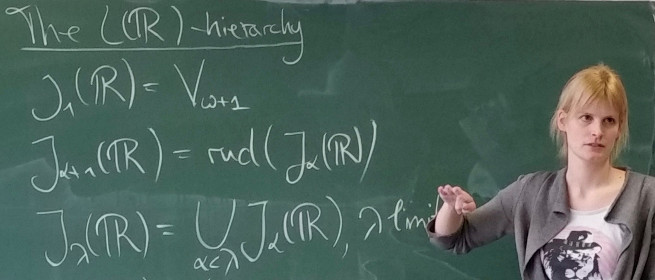 The L(ℝ)-hierarchy
J₁(ℝ) = V_{ω+1}
J_{α+1}(ℝ) = rud(J_α(ℝ))
J_λ(ℝ) = ⋃_{α<λ} J_α(ℝ), λ limit